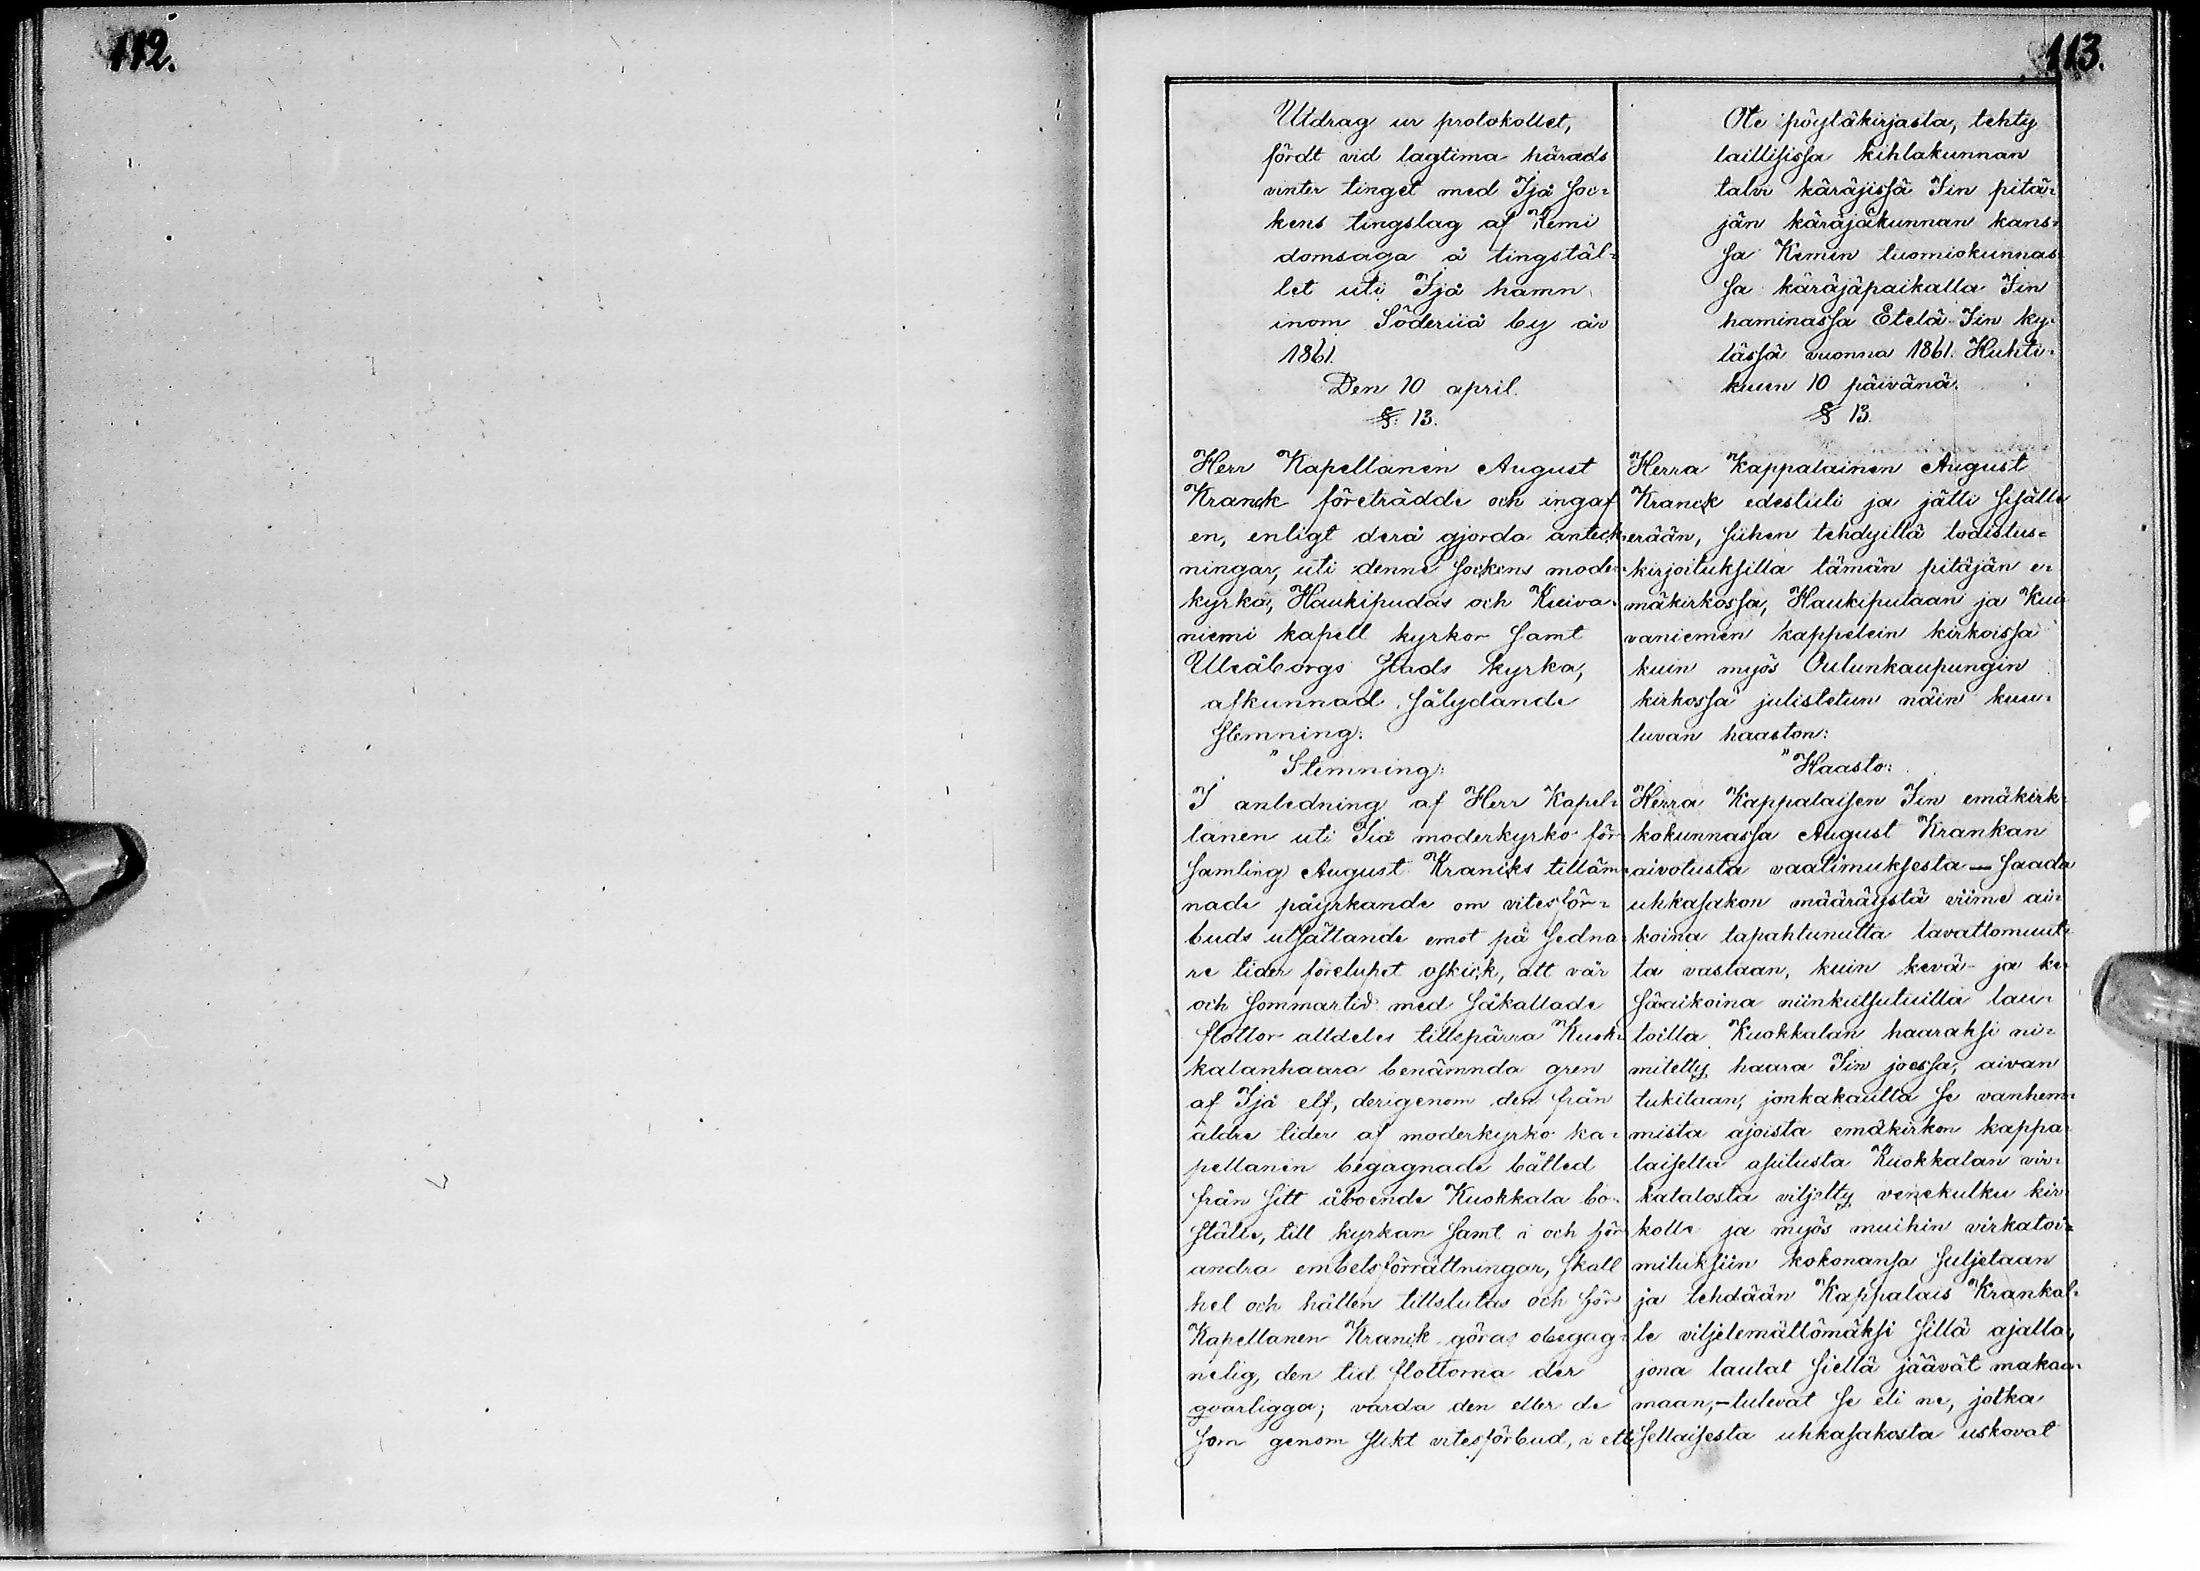 112.
113.
Utdrag ur protokollet,
fördt vid lagtima härads
vinter tinget med Ijå soc-
kens tingslag af Kemi
domsaga å tingstäl-
let uti Ijå hamn
inom Söderiiå by år
1861.
Den 10 april.
§. 13.
Herr Kapellanen August
Kranck företrädde och ingaf
en, enligt derå gjorda anteck-
ningar, uti denne sockens moder-
kyrka, Haukipudas och Kuiva-
niemi kapell kyrkor samt
Uleåborgs stads kyrka,
afkunnad sålydande
stemning:
"Stemning:
I anledning af Herr Kapel-
lanen uti Iiå moderkyrko för-
samling August Krancks tilläm-
nade påyrkande om vitesför-
buds utsättande emot på sedna-
re tider förelupet oskick, att vår
och sommartid med såkallade
flottor alldeles tillspärra Kuok-
kalanhaara benämnda gren
af Ijå elf, derigenom den från
äldre tider af moderkyrko ka-
pellanen begagnade båtled
från sitt åboende Kuokkala bo-
ställe, till kyrkan samt i och för
andra embetsförrättningar, skall
hel och hållen tillslutas och för
Kapellanen Kranck göras obegag-
nelig, den tid flottorna der
qvarligga; varda den eller de
som genom slikt vitesförbud, i ett
Ote pöytäkirjasta, tehty
laillisissa kihlakunnan
talvi käräjissä Iin pitä-
jän käräjäkunnan kans-
sa Kemin tuomiokunnas-
sa käräjäpaikalla Iin
haminassa Etelä-Iin ky-
lässä vuonna 1861. Huhti-
kuun 10 päivänä.
§ 13.
Herra Kappalainen August
Kranck edestuli ja jätti sisälle
erään, siihen tehdyillä todistus-
kirjoituksilla tämän pitäjän e-
mäkirkossa, Haukiputaan ja Kui-
vaniemen kappelein kirkoissa
kuin myös Oulunkaupungin
kirkossa julistetun näin kuu-
luvan haaston:
"Haasto:
Herra Kappalaisen Iin emäkirk-
kokunnassa August Krankan
aivotusta vaatimuksesta — saada
uhkasakon määräystä viime ai-
koina tapahtunutta tavattomuut-
ta vastaan, kuin kevä- ja ke-
säaikoina niinkutsutuilla lau-
toilla Kuokkalan haaraksi ni-
mitetty haara Iin joessa, aivan
tukitaan, jonkakautta se vanhem-
mista ajoista emäkirkon kappa-
laiselta asutusta Kuokkalan vir-
katalosta viljelty venekulku kir-
kolle ja myös muihin virkatoi-
mituksiin kokonansa suljetaan
ja tehdään Kappalais Krankal-
le viljelemättömäksi sillä ajalla,
jona lautat siellä jäävät makaa-
maan, - tulevat se eli ne, jotka
sellaisesta uhkasakosta uskovat